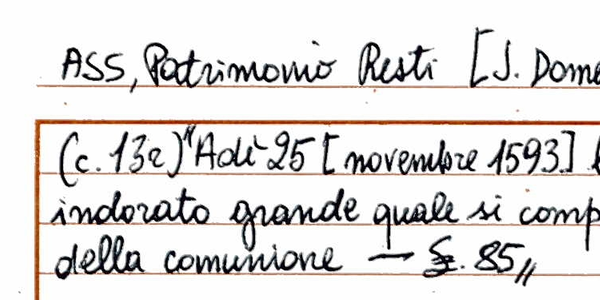 ASS, Patrimonio Resti [S. Dome
(c. 13r) "Adì 25 [novembre 1593]
indorato grande quale si comp
della comunione — £. 85,,